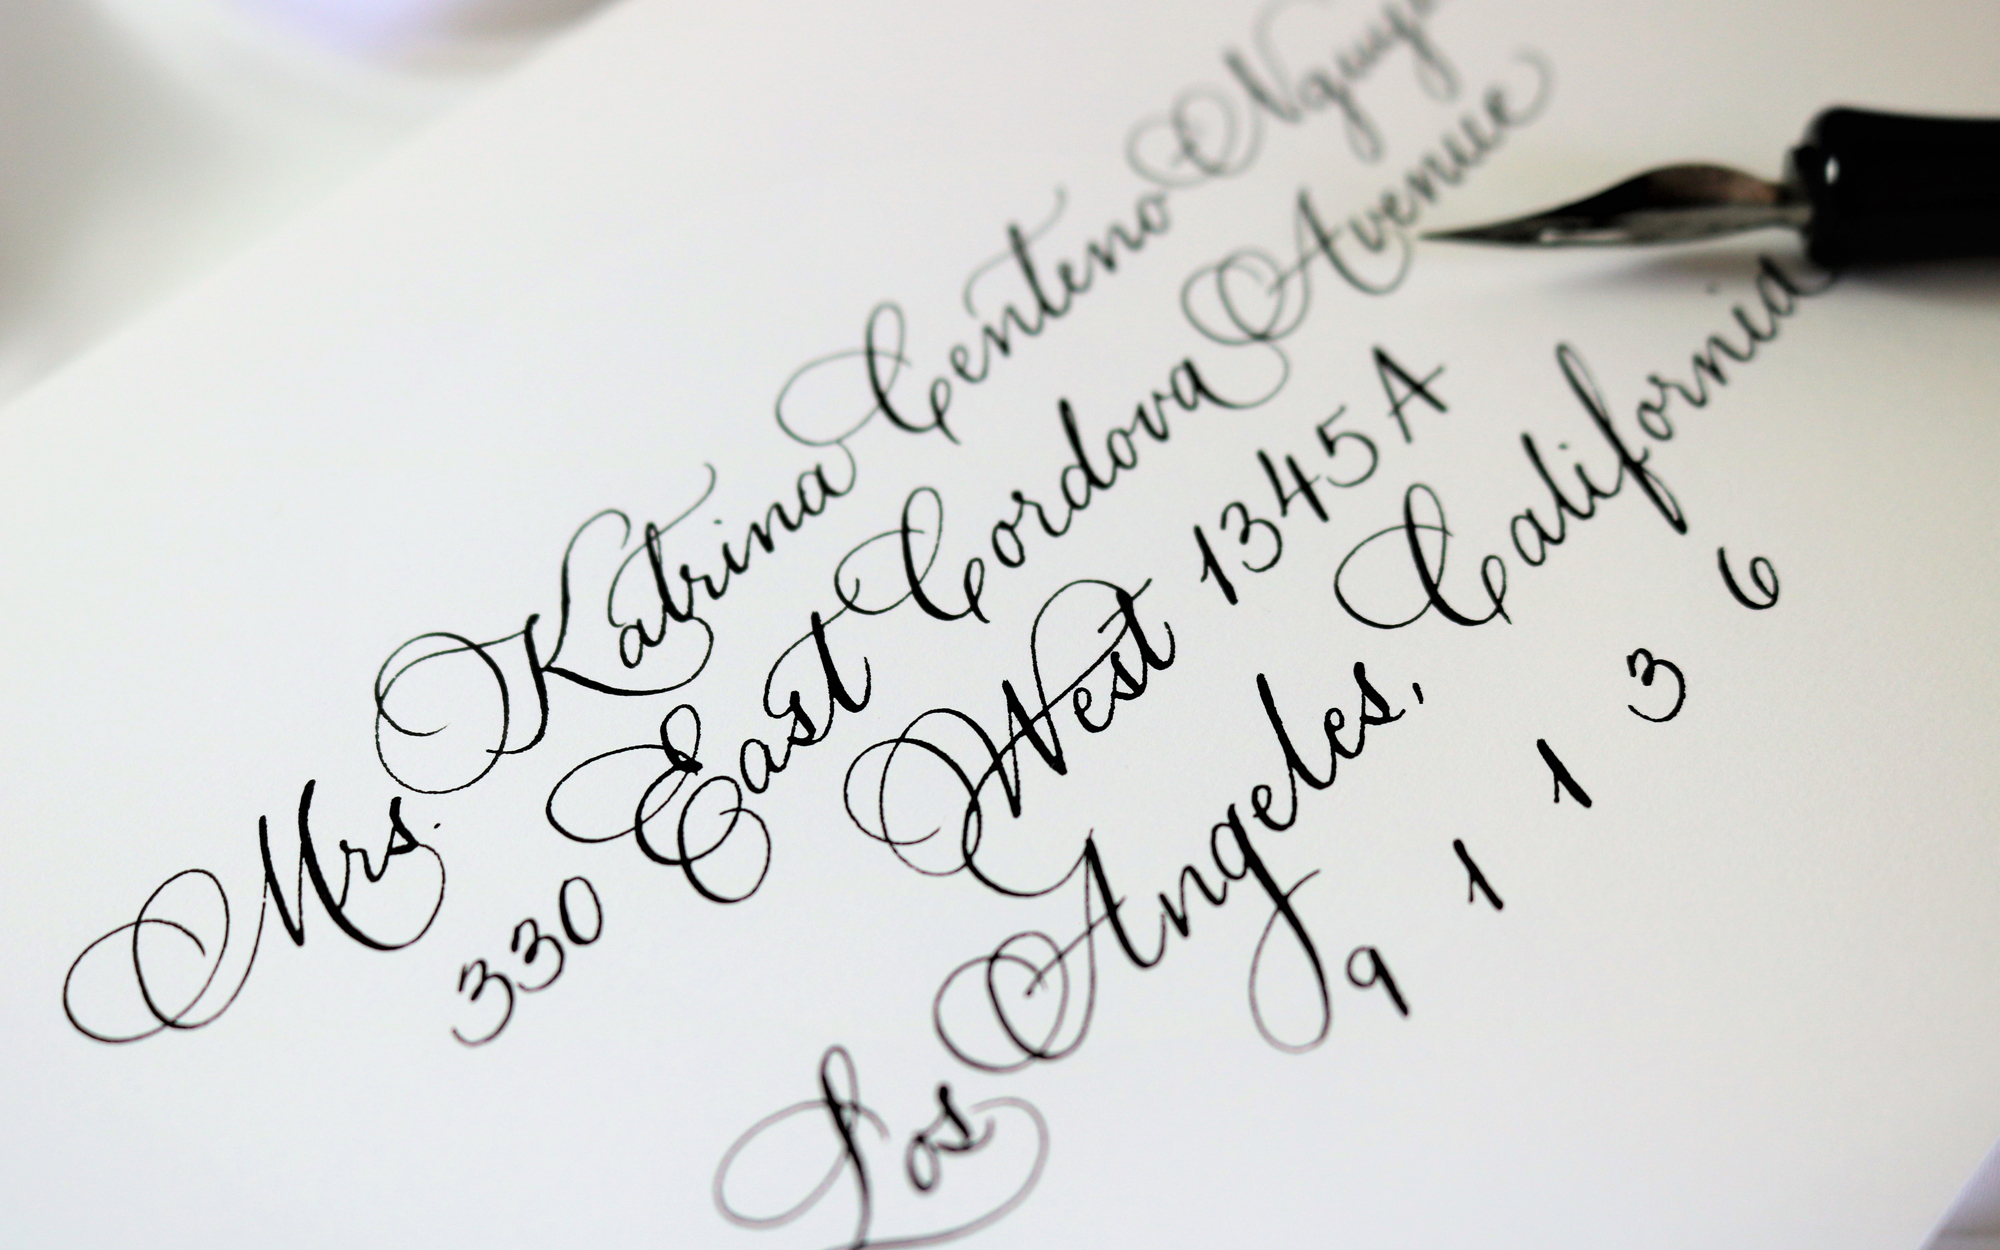 Mrs. Katrina Centeno
330 East Cordova Avenue
West 1345A
Los Angeles, California
9 1 1 3 6